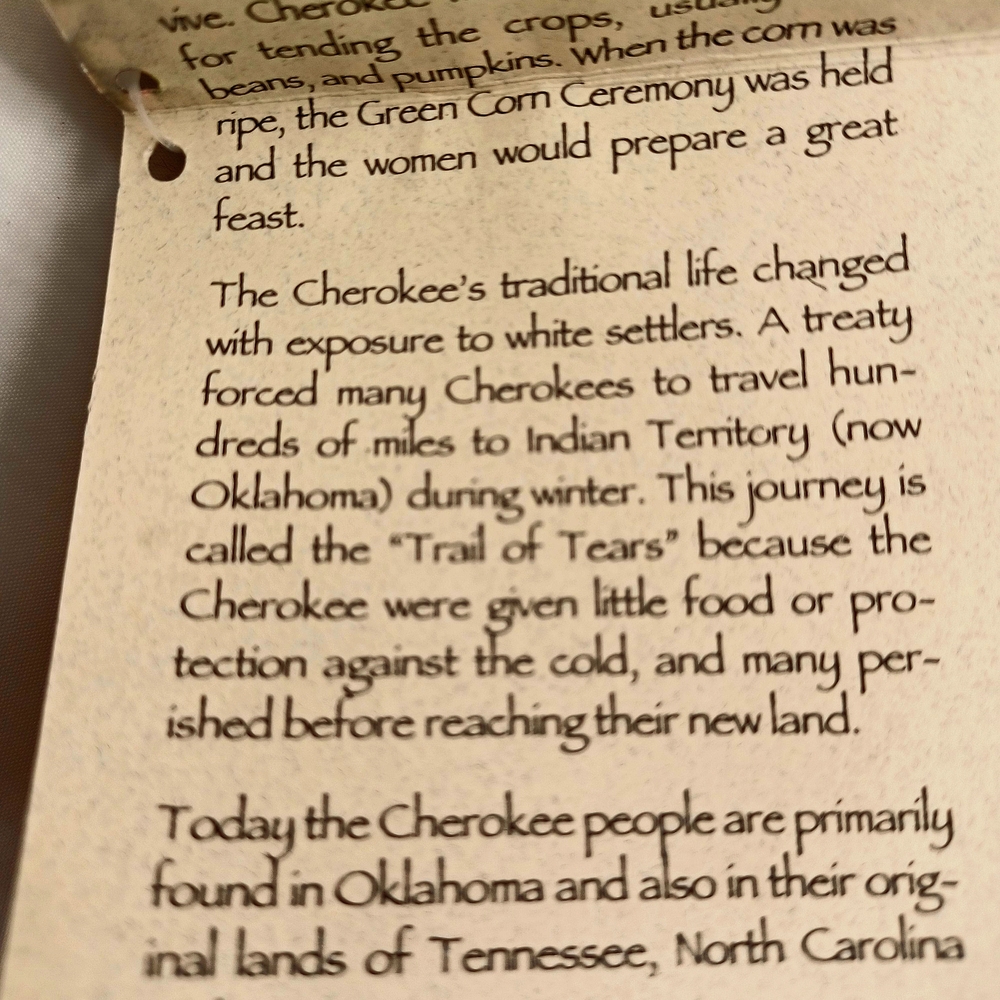 vive. Cherokee
for tending the crops, usually
beans, and pumpkins. When the corn was
ripe, the Green Corn Ceremony was held
and the women would prepare a great
feast.
The Cherokee's traditional life changed
with exposure to white settlers. A treaty
forced many Cherokees to travel hun-
dreds of miles to Indian Territory (now
Oklahoma) during winter. This journey is
called the “Trail of Tears” because the
Cherokee were given little food or pro-
tection against the cold, and many per-
ished before reaching their new land.
Today the Cherokee people are primarily
found in Oklahoma and also in their orig-
inal lands of Tennessee, North Carolina